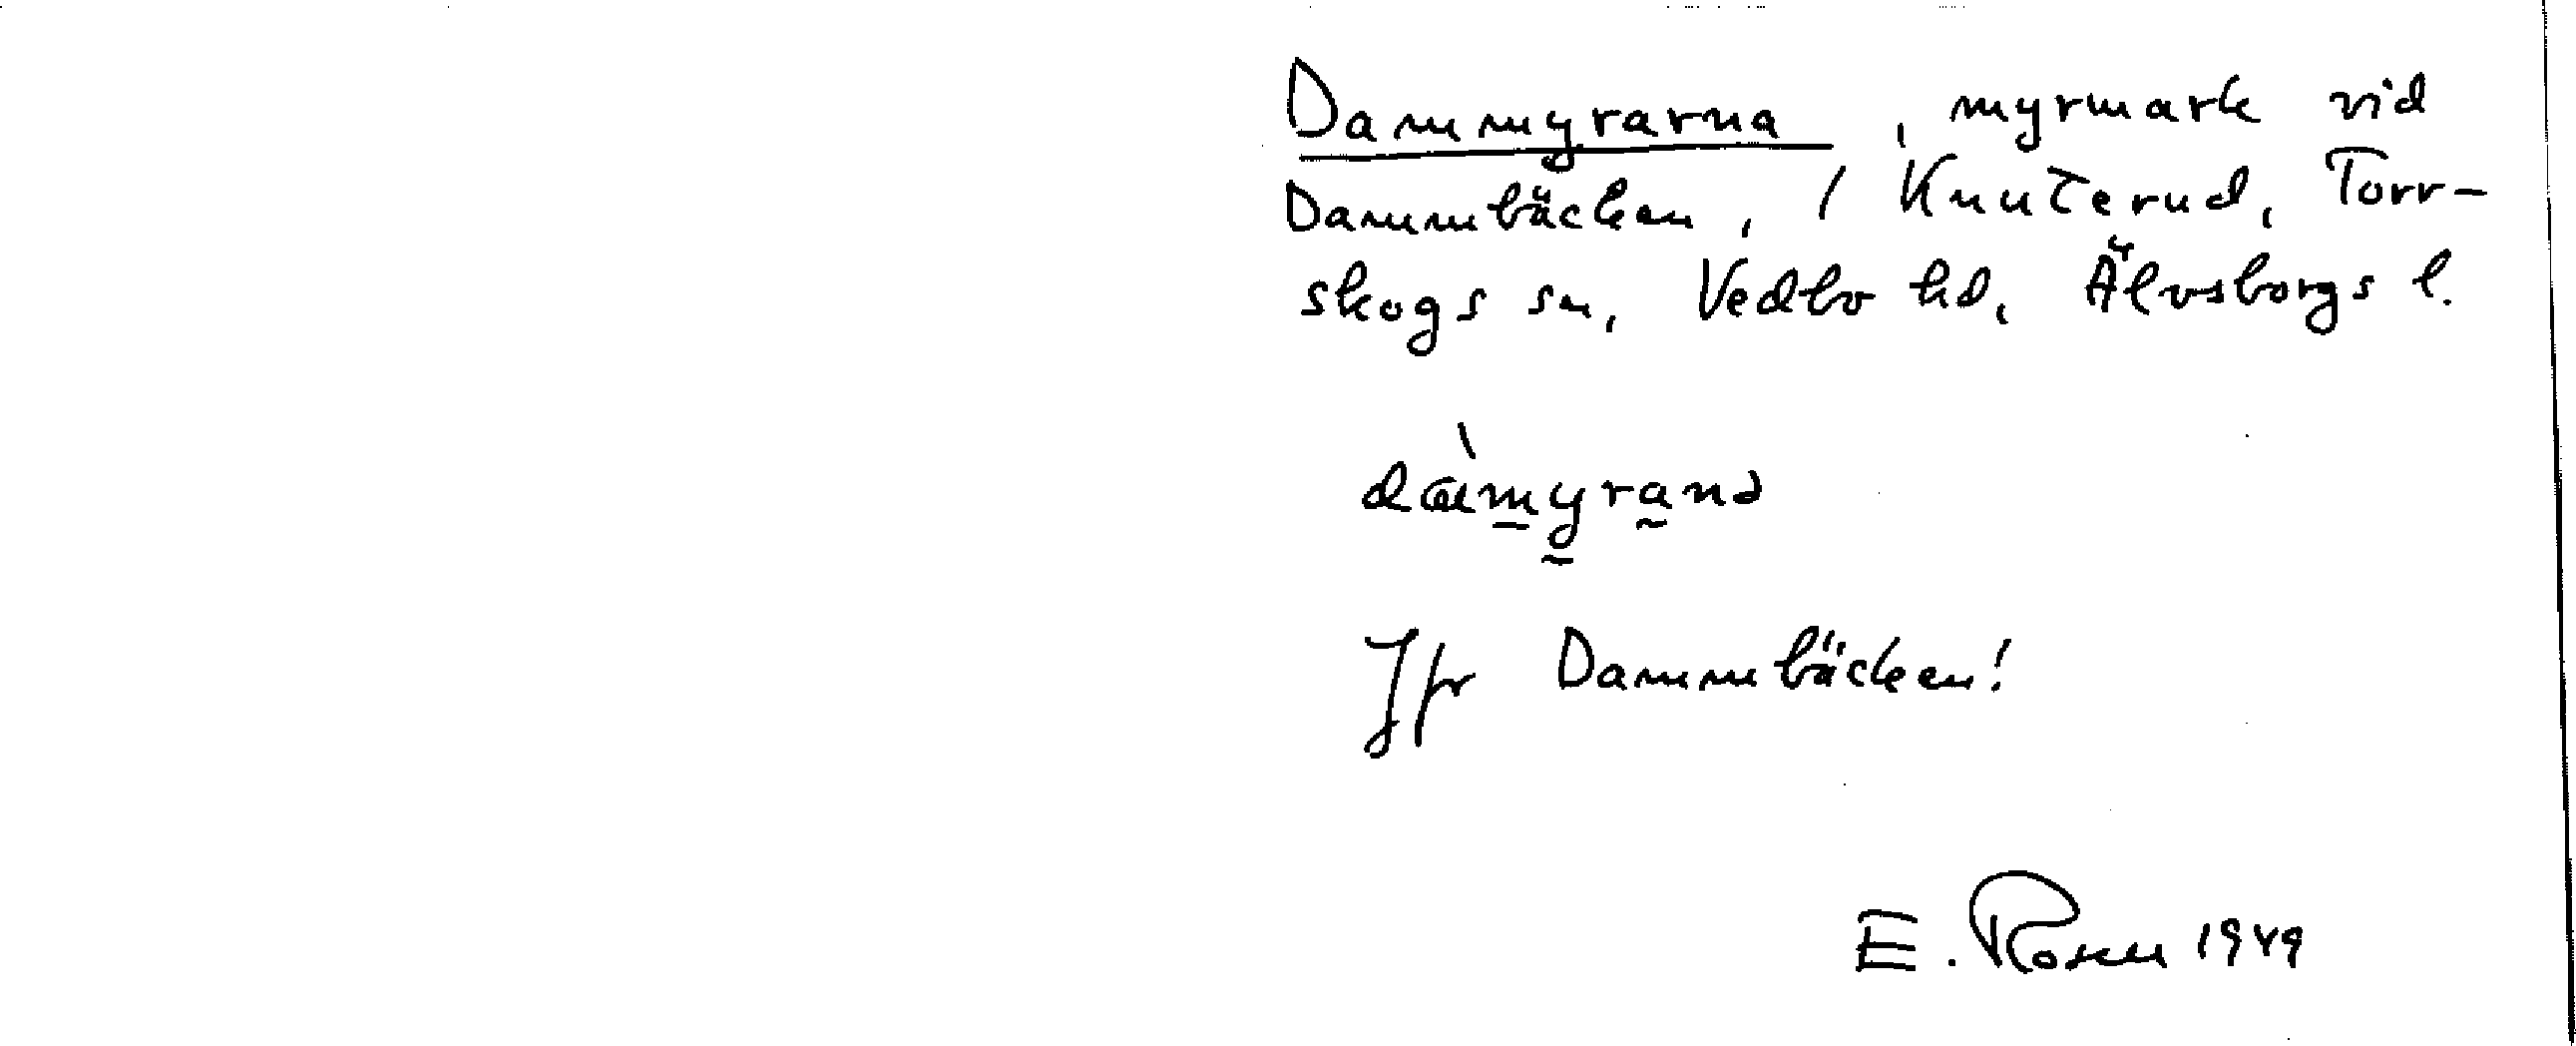 Dammyrarna, myrmark vid
Dammbäcken, 1 Knuterud, Torr-
skogs sn, Vedbo hd, Älvsborgs l.
Jfr Dammbäcken!
E. Rosen 1949